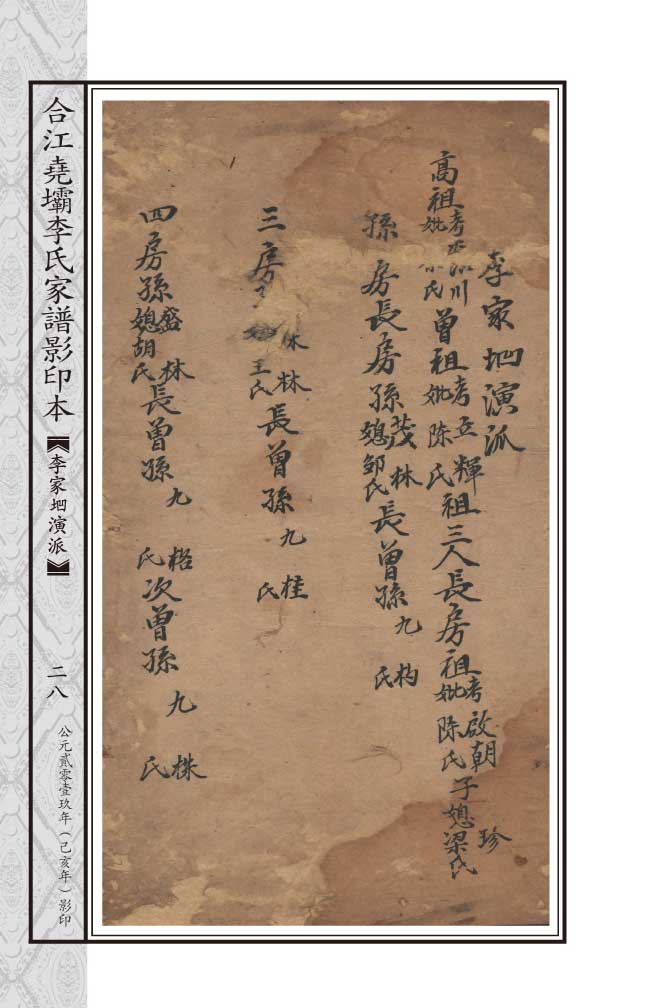 李家𡊢演派
高祖考丞泌川妣 氏曾祖考五輝妣陳氏祖三人長房祖考啟朝妣陳氏子珍媳梁氏
孫 房長房孫茂林媳鄒氏長曾孫九杓 氏
三房 林 王氏 林長曾孫九桂 氏
四房孫盛林媳胡氏長曾孫九格 氏次曾孫九株 氏
合江堯壩李氏家譜影印本
【李家𡊢演派】
二八
公元貳零壹玖年（己亥年）影印